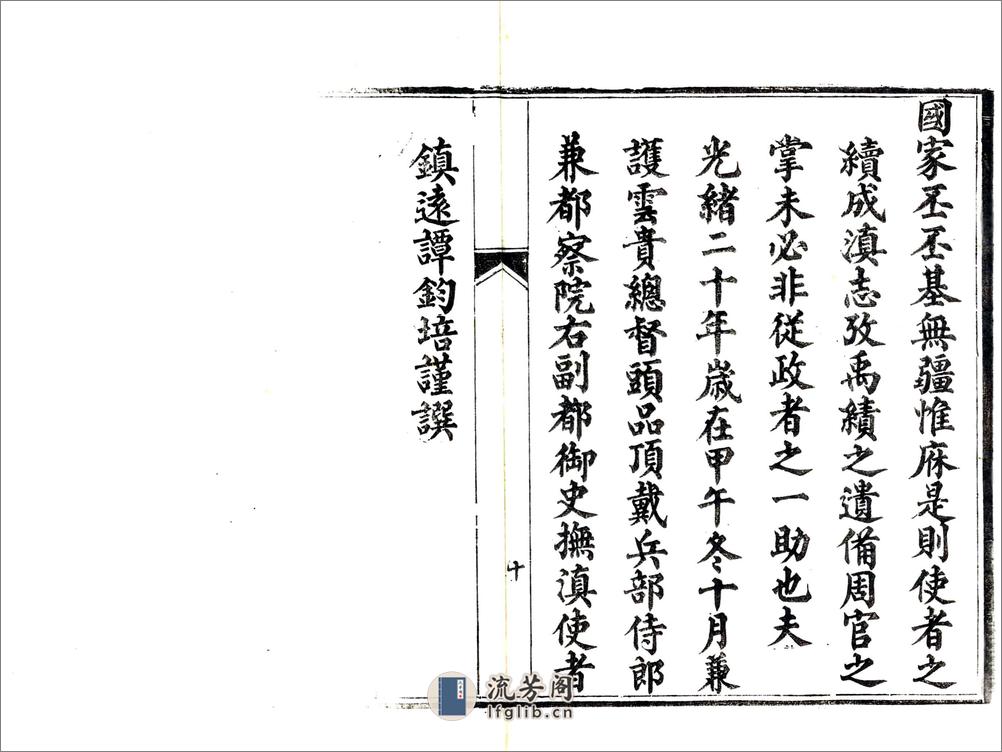 國家丕丕基無疆惟庥是則使者之
續成滇志攷禹績之遺備周官之
掌未必非從政者之一助也夫
光緒二十年歲在甲午冬十月兼
護雲貴總督頭品頂戴兵部侍郎
兼都察院右副都御史撫滇使者
十
鎮遠譚鈞培謹譔
流芳阁
lfglib.cn